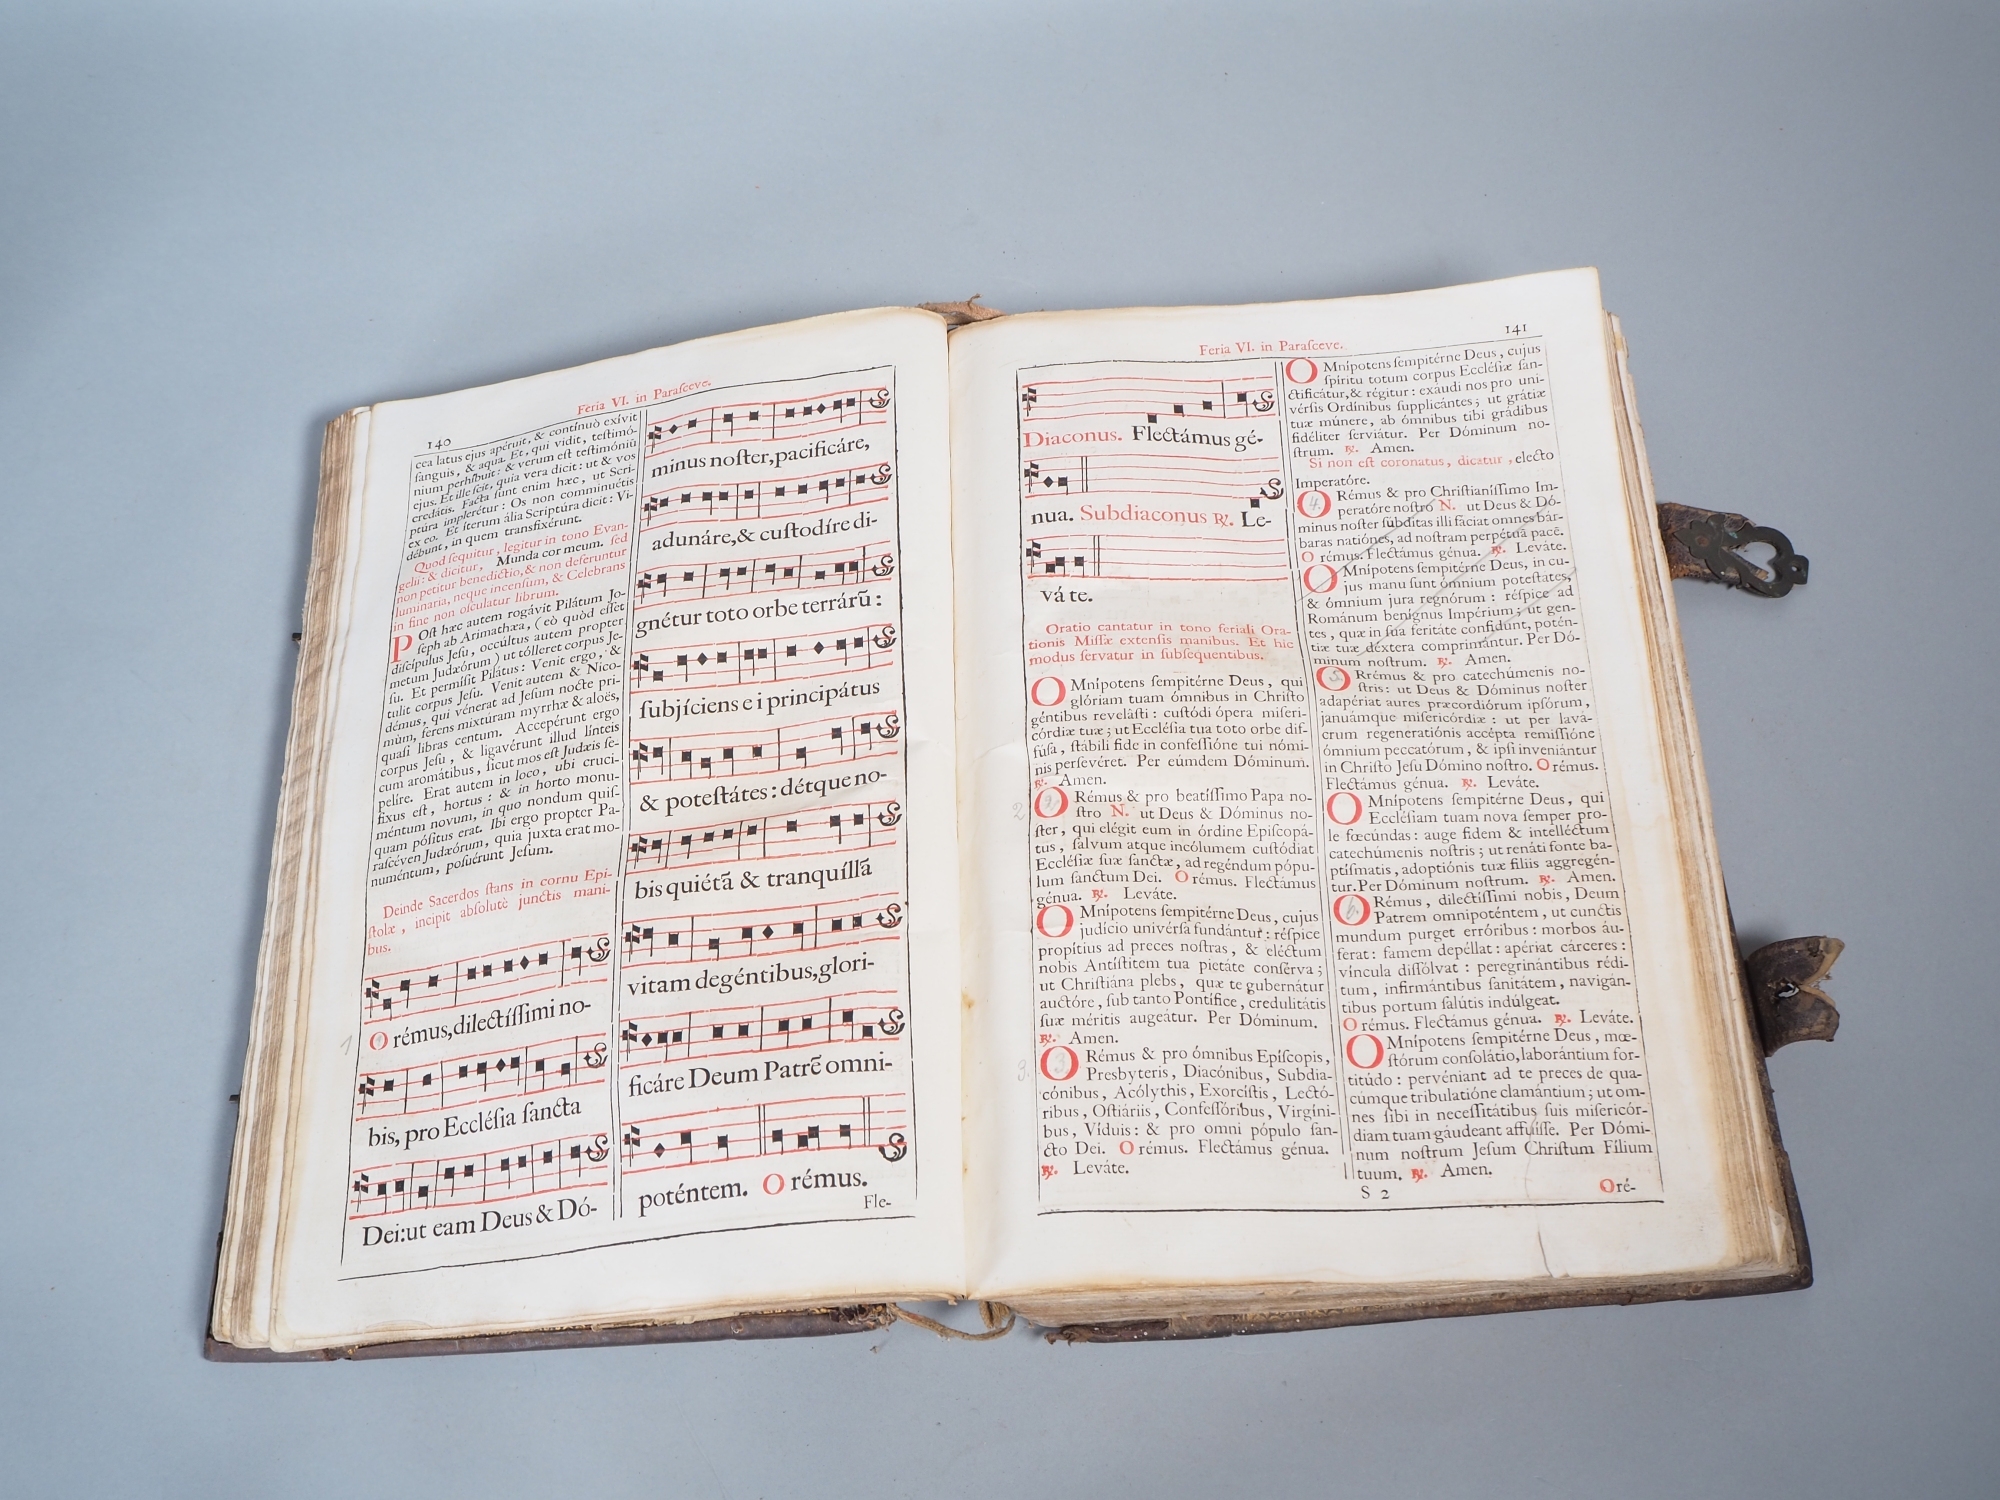 140
Feria VI. in Paraſceve.
cea latus ejus apéruit, & contínuò exívit
ſanguis, & aqua. Et, qui vidit, teſtimó-
nium perhíbuit: & verum eſt teſtimóniũ
ejus. Et ille ſcit, quia vera dicit: ut & vos
credátis. Facta ſunt enim hæc, ut Scri-
ptúra implerétur: Os non comminuétis
ex eo. Et íterum ália Scriptúra dicit: Vi-
débunt, in quem transfixérunt.
Quod ſequitur, legitur in tono Evan-
gelii: & dicitur, Munda cor meum. ſed
non petitur benedictio, & non deferuntur
luminaria, neque incenſum, & Celebrans
in fine non oſculatur librum.
POſt hæc autem rogávit Pilátum Jo-
ſeph ab Arimathæa, (eò quòd eſſet
diſcípulus Jeſu, occúltus autem propter
metum Judæórum) ut tólleret corpus Je-
ſu. Et permíſit Pilátus: Venit ergo, &
tulit corpus Jeſu. Venit autem & Nico-
démus, qui vénerat ad Jeſum nocte pri-
mùm, ferens mixtúram myrrhæ & áloës,
quaſi libras centum. Accepérunt ergo
corpus Jeſu, & ligavérunt illud línteis
cum aromátibus, ſicut mos eſt Judæis ſe-
pelíre. Erat autem in loco, ubi cruci-
fixus eſt, hortus: & in horto monu-
méntum novum, in quo nondum quiſ-
quam póſitus erat. Ibi ergo propter Pa-
raſcéven Judæórum, quia juxta erat mo-
numéntum, poſuérunt Jeſum.
Deinde Sacerdos ſtans in cornu Epi-
ſtolæ, incipit abſolutè junctis mani-
bus.
1
Orémus, dilectíſſimi no-
bis, pro Eccléſia ſancta
Dei: ut eam Deus & Dó-
minus noſter, pacificáre,
adunáre, & cuſtodíre di-
gnétur toto orbe terrárũ:
ſubjíciens ei principátus
& poteſtátes: détque no-
bis quiétã & tranquíllã
vitam degéntibus, glori-
ficáre Deum Patrẽ omni-
poténtem. Orémus.
Fle-
Feria VI. in Paraſceve.
141
Diaconus. Flectámus gé-
nua. Subdiaconus ℟. Le-
váte.
Oratio cantatur in tono feriali Ora-
tionis Miſſæ extenſis manibus. Et hic
modus ſervatur in ſubſequentibus.
OMnípotens ſempitérne Deus, qui
glóriam tuam ómnibus in Chriſto
géntibus revelaſti: cuſtódi ópera miſeri-
córdiæ tuæ; ut Eccléſia tua toto orbe dif-
fúſa, ſtábili fide in confeſſióne tui nómi-
nis perſevéret. Per eúmdem Dóminum.
℟. Amen.
2
ORémus & pro beatíſſimo Papa no-
ſtro N. ut Deus & Dóminus no-
ſter, qui elégit eum in órdine Epiſcopá-
tus, ſalvum atque incólumem cuſtódiat
Eccléſiæ ſuæ ſanctæ, ad regéndum pópu-
lum ſanctum Dei. Orémus. Flectámus
génua. ℟. Leváte.
OMnípotens ſempitérne Deus, cujus
judício univérſa fundántur: réſpice
propítius ad preces noſtras, & eléctum
nobis Antíſtitem tua pietáte conſérva;
ut Chriſtiána plebs, quæ te gubernátur
auctóre, ſub tanto Pontífice, credulitátis
ſuæ méritis augeátur. Per Dóminum.
℟. Amen.
3.
ORémus & pro ómnibus Epíſcopis,
Presbyteris, Diacónibus, Subdia-
cónibus, Acólythis, Exorcíſtis, Lectó-
ribus, Oſtiáriis, Confeſſóribus, Virgíni-
bus, Víduis: & pro omni pópulo ſan-
cto Dei. Orémus. Flectámus génua.
℟. Leváte.
OMnípotens ſempitérne Deus, cujus
ſpíritu totum corpus Eccléſiæ ſan-
ctificátur, & régitur: exáudi nos pro uni-
vérſis Ordínibus ſupplicántes; ut grátiæ
tuæ múnere, ab ómnibus tibi grádibus
fidéliter ſerviátur. Per Dóminum no-
ſtrum. ℟. Amen.
Si non eſt coronatus, dicatur, elécto
Imperatóre.
4.
ORémus & pro Chriſtianíſſimo Im-
peratóre noſtro N. ut Deus & Dó-
minus noſter ſúbditas illi fáciat omnes bár-
baras natiónes, ad noſtram perpétuã pacẽ.
Orémus. Flectámus génua. ℟. Leváte.
OMnípotens ſempitérne Deus, in cu-
jus manu ſunt ómnium poteſtates,
& ómnium jura regnórum: réſpice ad
Románum benígnus Impérium; ut gen-
tes, quæ in ſua feritáte confídunt, potén-
tiæ tuæ déxtera comprimántur. Per Dó-
minum noſtrum. ℟. Amen.
5.
ORrémus & pro catechúmenis no-
ſtris: ut Deus & Dóminus noſter
adapériat aures præcordiórum ipſórum,
januámque miſericórdiæ: ut per lavá-
crum regeneratiónis accépta remiſſióne
ómnium peccatórum, & ipſi inveniántur
in Chriſto Jeſu Dómino noſtro. Orémus.
Flectámus génua. ℟. Leváte.
OMnípotens ſempitérne Deus, qui
Eccléſiam tuam nova ſemper pro-
le fœcúndas: auge fidem & intelléctum
catechúmenis noſtris; ut renáti fonte ba-
ptíſmatis, adoptiónis tuæ fíliis aggregén-
tur. Per Dóminum noſtrum. ℟. Amen.
6.
ORémus, dilectíſſimi nobis, Deum
Patrem omnipoténtem, ut cunctis
mundum purget erróribus: morbos áu-
ferat: famem depéllat: apériat cárceres:
víncula diſſólvat: peregrinántibus rédi-
tum, infirmántibus ſanitátem, navigán-
tibus portum ſalútis indúlgeat.
Orémus. Flectámus génua. ℟. Leváte.
OMnípotens ſempitérne Deus, mœ-
ſtórum conſolátio, laborántium for-
titúdo: pervéniant ad te preces de qua-
cúmque tribulatióne clamántium; ut om-
nes ſibi in neceſſitátibus ſuis miſericór-
diam tuam gáudeant affuíſſe. Per Dómi-
num noſtrum Jeſum Chriſtum Fílium
tuum. ℟. Amen.
S 2
Oré-